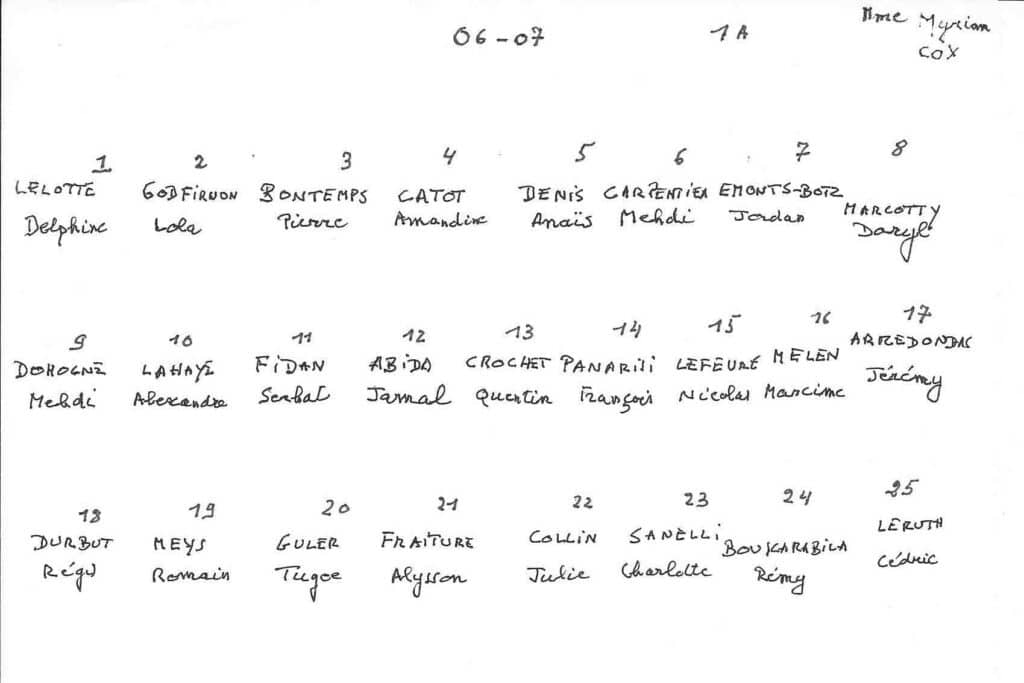 06-07 1A Mme Myriam
COX
1 2 3 4 5 6 7 8
LELOTTE GODFIRNON BONTEMPS CATOT DENIS CARPENTIER EMONTS-BOTZ MARCOTTY
Delphine Lola Pierre Amandine Anaïs Mehdi Jordan Daryl
9 10 11 12 13 14 15 16 17
DOHOGNE LAHAYE FIDAN ABIDA CROCHET PANARISI LEFEVRE MELEN ARREDONDAS
Mehdi Alexandre Serhat Jamal Quentin François Nicolas Maxime Jérémy
18 19 20 21 22 23 24 25
DURBUT MEYS GULER FRAITURE COLLIN SANELLI BOUSCARABILA LERUTH
Régis Romain Tugce Alysson Julie Charlotte Rémy Cédric